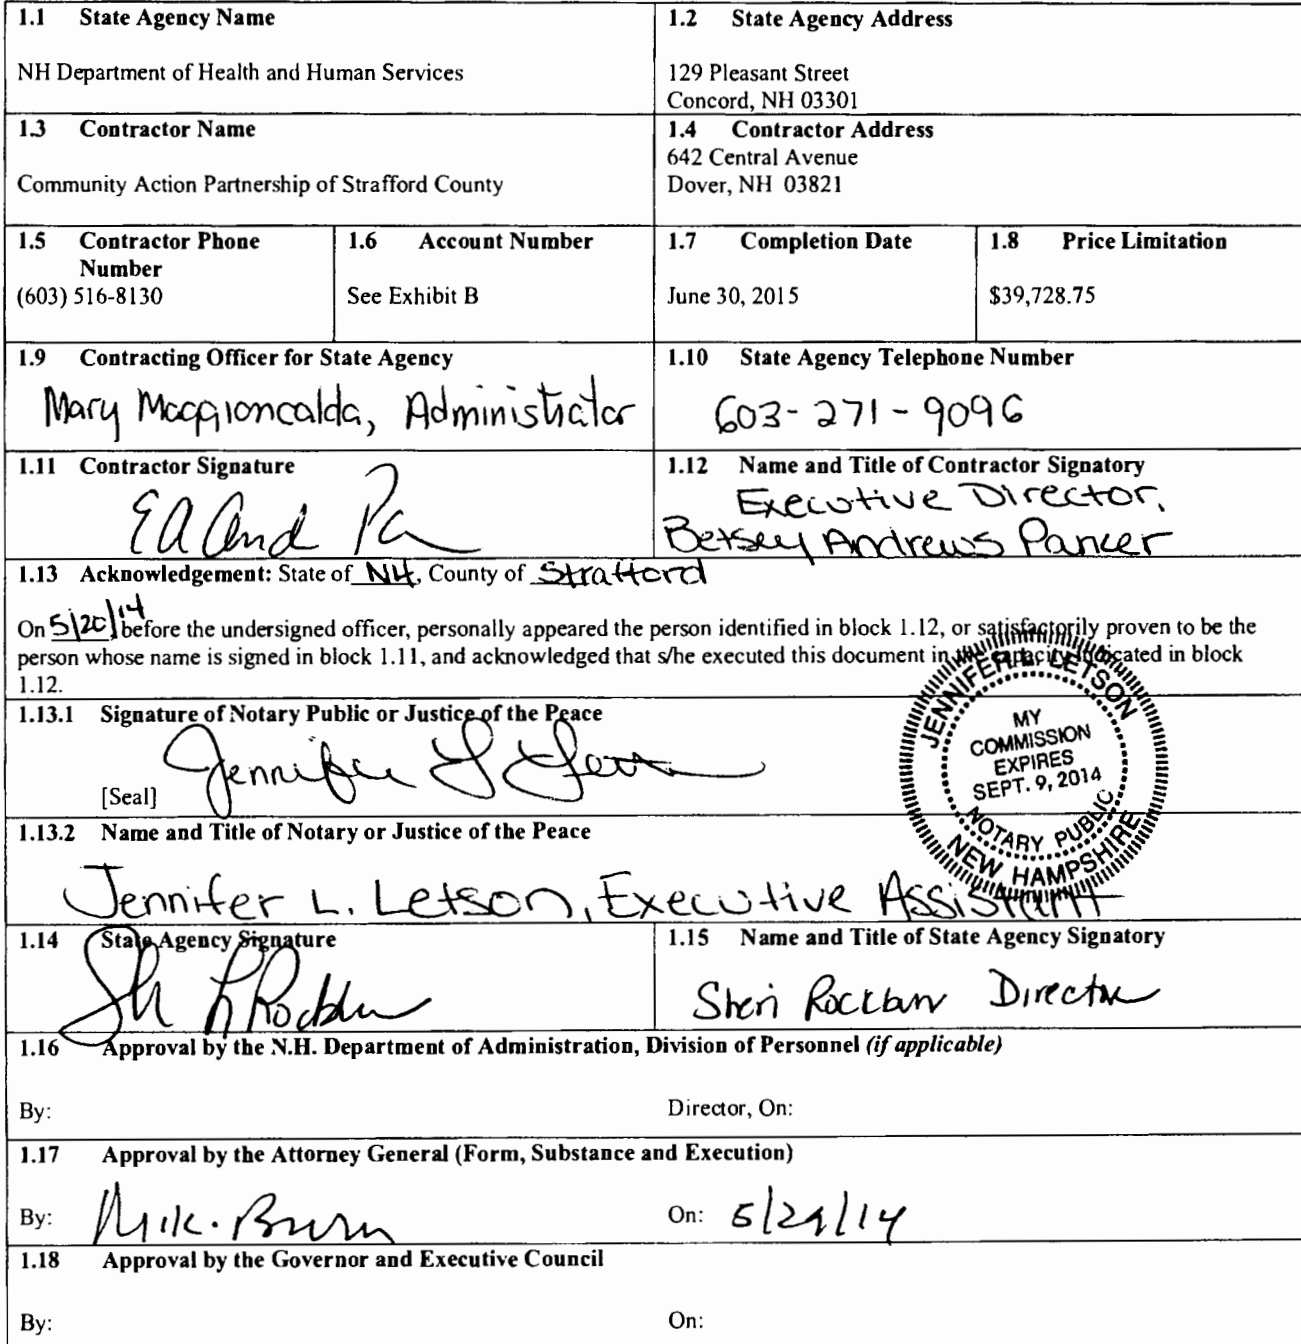 1.1 State Agency Name
NH Department of Health and Human Services
1.2 State Agency Address
129 Pleasant Street
Concord, NH 03301
1.3 Contractor Name
Community Action Partnership of Strafford County
1.4 Contractor Address
642 Central Avenue
Dover, NH 03821
1.5 Contractor Phone
Number
(603) 516-8130
1.6 Account Number
See Exhibit B
1.7 Completion Date
June 30, 2015
1.8 Price Limitation
$39,728.75
1.9 Contracting Officer for State Agency
Mary Maggioncalda, Administrator
1.10 State Agency Telephone Number
603-271-9096
1.11 Contractor Signature
1.12 Name and Title of Contractor Signatory
Executive Director,
Betsey Andrews Parker
1.13 Acknowledgement: State of NH, County of Strafford
On 5/20/14 before the undersigned officer, personally appeared the person identified in block 1.12, or satisfactorily proven to be the
person whose name is signed in block 1.11, and acknowledged that s/he executed this document in the capacity indicated in block
1.12.
JENNIFER L. LETSON
MY
COMMISSION
EXPIRES
SEPT. 9, 2014
NOTARY PUBLIC
NEW HAMPSHIRE
1.13.1 Signature of Notary Public or Justice of the Peace
Jennifer L
[Seal]
1.13.2 Name and Title of Notary or Justice of the Peace
Jennifer L. Letson, Executive Assistant
1.14 State Agency Signature
1.15 Name and Title of State Agency Signatory
Sheri Director
1.16 Approval by the N.H. Department of Administration, Division of Personnel (if applicable)
By:
Director, On:
1.17 Approval by the Attorney General (Form, Substance and Execution)
By:
On: 5/29/14
1.18 Approval by the Governor and Executive Council
By:
On: